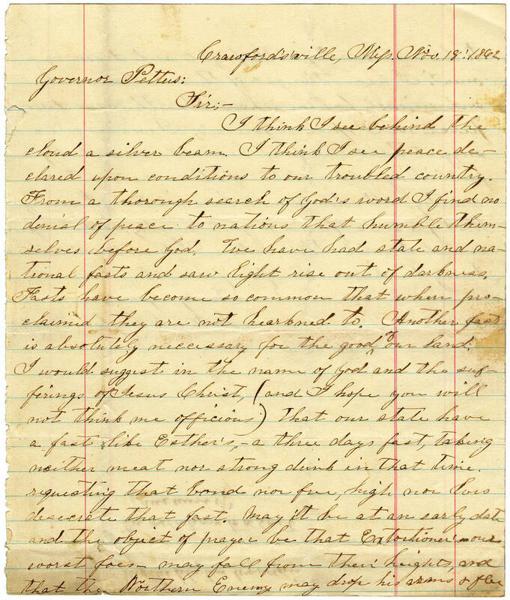 Crawfordsville, Miss. Nov. 19. 1862
Governor Pettus:
Sir;-
I think I see behind the
cloud a silver beam. I think I see peace de-
clared upon conditions to our troubled country.
From a thorough search of God's word I find no
denial of peace to nations that humble them-
selves before God. We have had state and na-
tional fasts and saw light rise out of darkness.
Fasts have become so common that when pro-
claimed they are not hearkned to. Another fast
is absolutely neccessary for the good of our land.
I would suggest in the name of God and the suf-
firings of Jesus Christ, (and I hope you will
not think me officious) that our state have
a fast like Esther's,- a three days fast, taking
neither meat nor strong drink in that time.
requesting that bond nor free, high nor low
desecrate that fast. May it be at an early date
and the object of prayer be that Extortioners - our
worst foes - may fall from their heights, and
that the Northern Enemy may drop his arms & flee